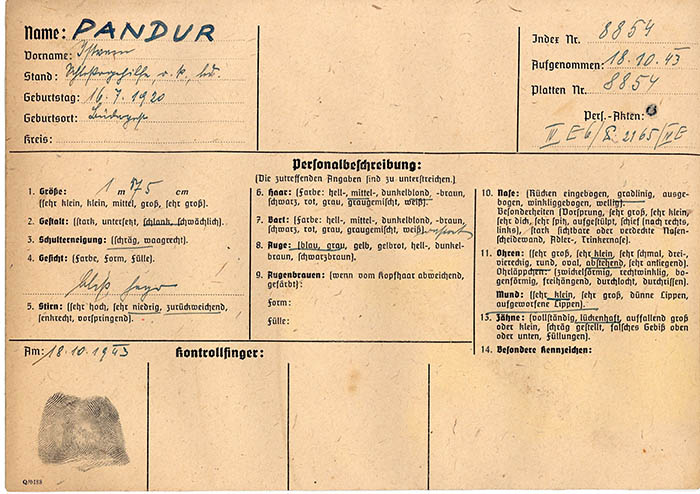 Name: PANDUR
Vorname: Istvan
Stand: Schlossergehilfe, r. k., led.
Geburtstag: 16. 7. 1920
Geburtsort: Budapest
Kreis:
Index Nr. 8854
Aufgenommen: 18. 10. 43
Platten Nr. 8854
Pers.-Akten:
II E 6/ 2165/ II E
Personalbeschreibung:
(Die zutreffenden Angaben sind zu unterstreichen.)
1. Größe: 1 m 875 cm
(sehr klein, klein, mittel, groß, sehr groß).
2. Gestalt: (stark, untersetzt, schlank, schwächlich).
3. Schulterneigung: (schräg, waagrecht).
4. Gesicht: (Farbe, Form, Fülle).
5. Stirn: (sehr hoch, sehr niedrig, zurückweichend,
senkrecht, vorspringend).
6. Haar: (Farbe: hell-, mittel-, dunkelblond, -braun,
schwarz, rot, grau, graugemischt, weiß).
7. Bart: (Farbe: hell-, mittel-, dunkelblond, -braun,
schwarz, rot, grau, graugemischt, weiß).
8. Auge: (blau, grau, gelb, gelbrot, hell-, dunkel-
braun, schwarzbraun).
9. Augenbrauen: (wenn vom Kopfhaar abweichend,
gefärbt):
Form:
Fülle:
10. Nase: (Rücken eingebogen, gradlinig, ausge-
bogen, winkliggebogen, wellig).
Besonderheiten (Vorsprung, sehr groß, sehr klein,
sehr dick, sehr spitz, aufgestülpt, schief (nach rechts,
links), stark sichtbare oder verdeckte Nasen-
scheidewand, Adler-, Trinkernase).
11. Ohren: (sehr groß, sehr klein, sehr schmal, drei-,
viereckig, rund, oval, abstehend, sehr anliegend).
Ohrläppchen: (zwickelförmig, rechtwinklig, bo-
genförmig, freihängend, durchlocht, durchrissen).
Mund: (sehr klein, sehr groß, dünne Lippen,
aufgeworfene Lippen).
13. Zähne: (vollständig, lückenhaft, auffallend groß
oder klein, schräg gestellt, falsches Gebiß oben
oder unten, Füllungen).
14. Besondere Kennzeichen:
Am: 18. 10. 1943
Kontrollfinger:
Q/0188